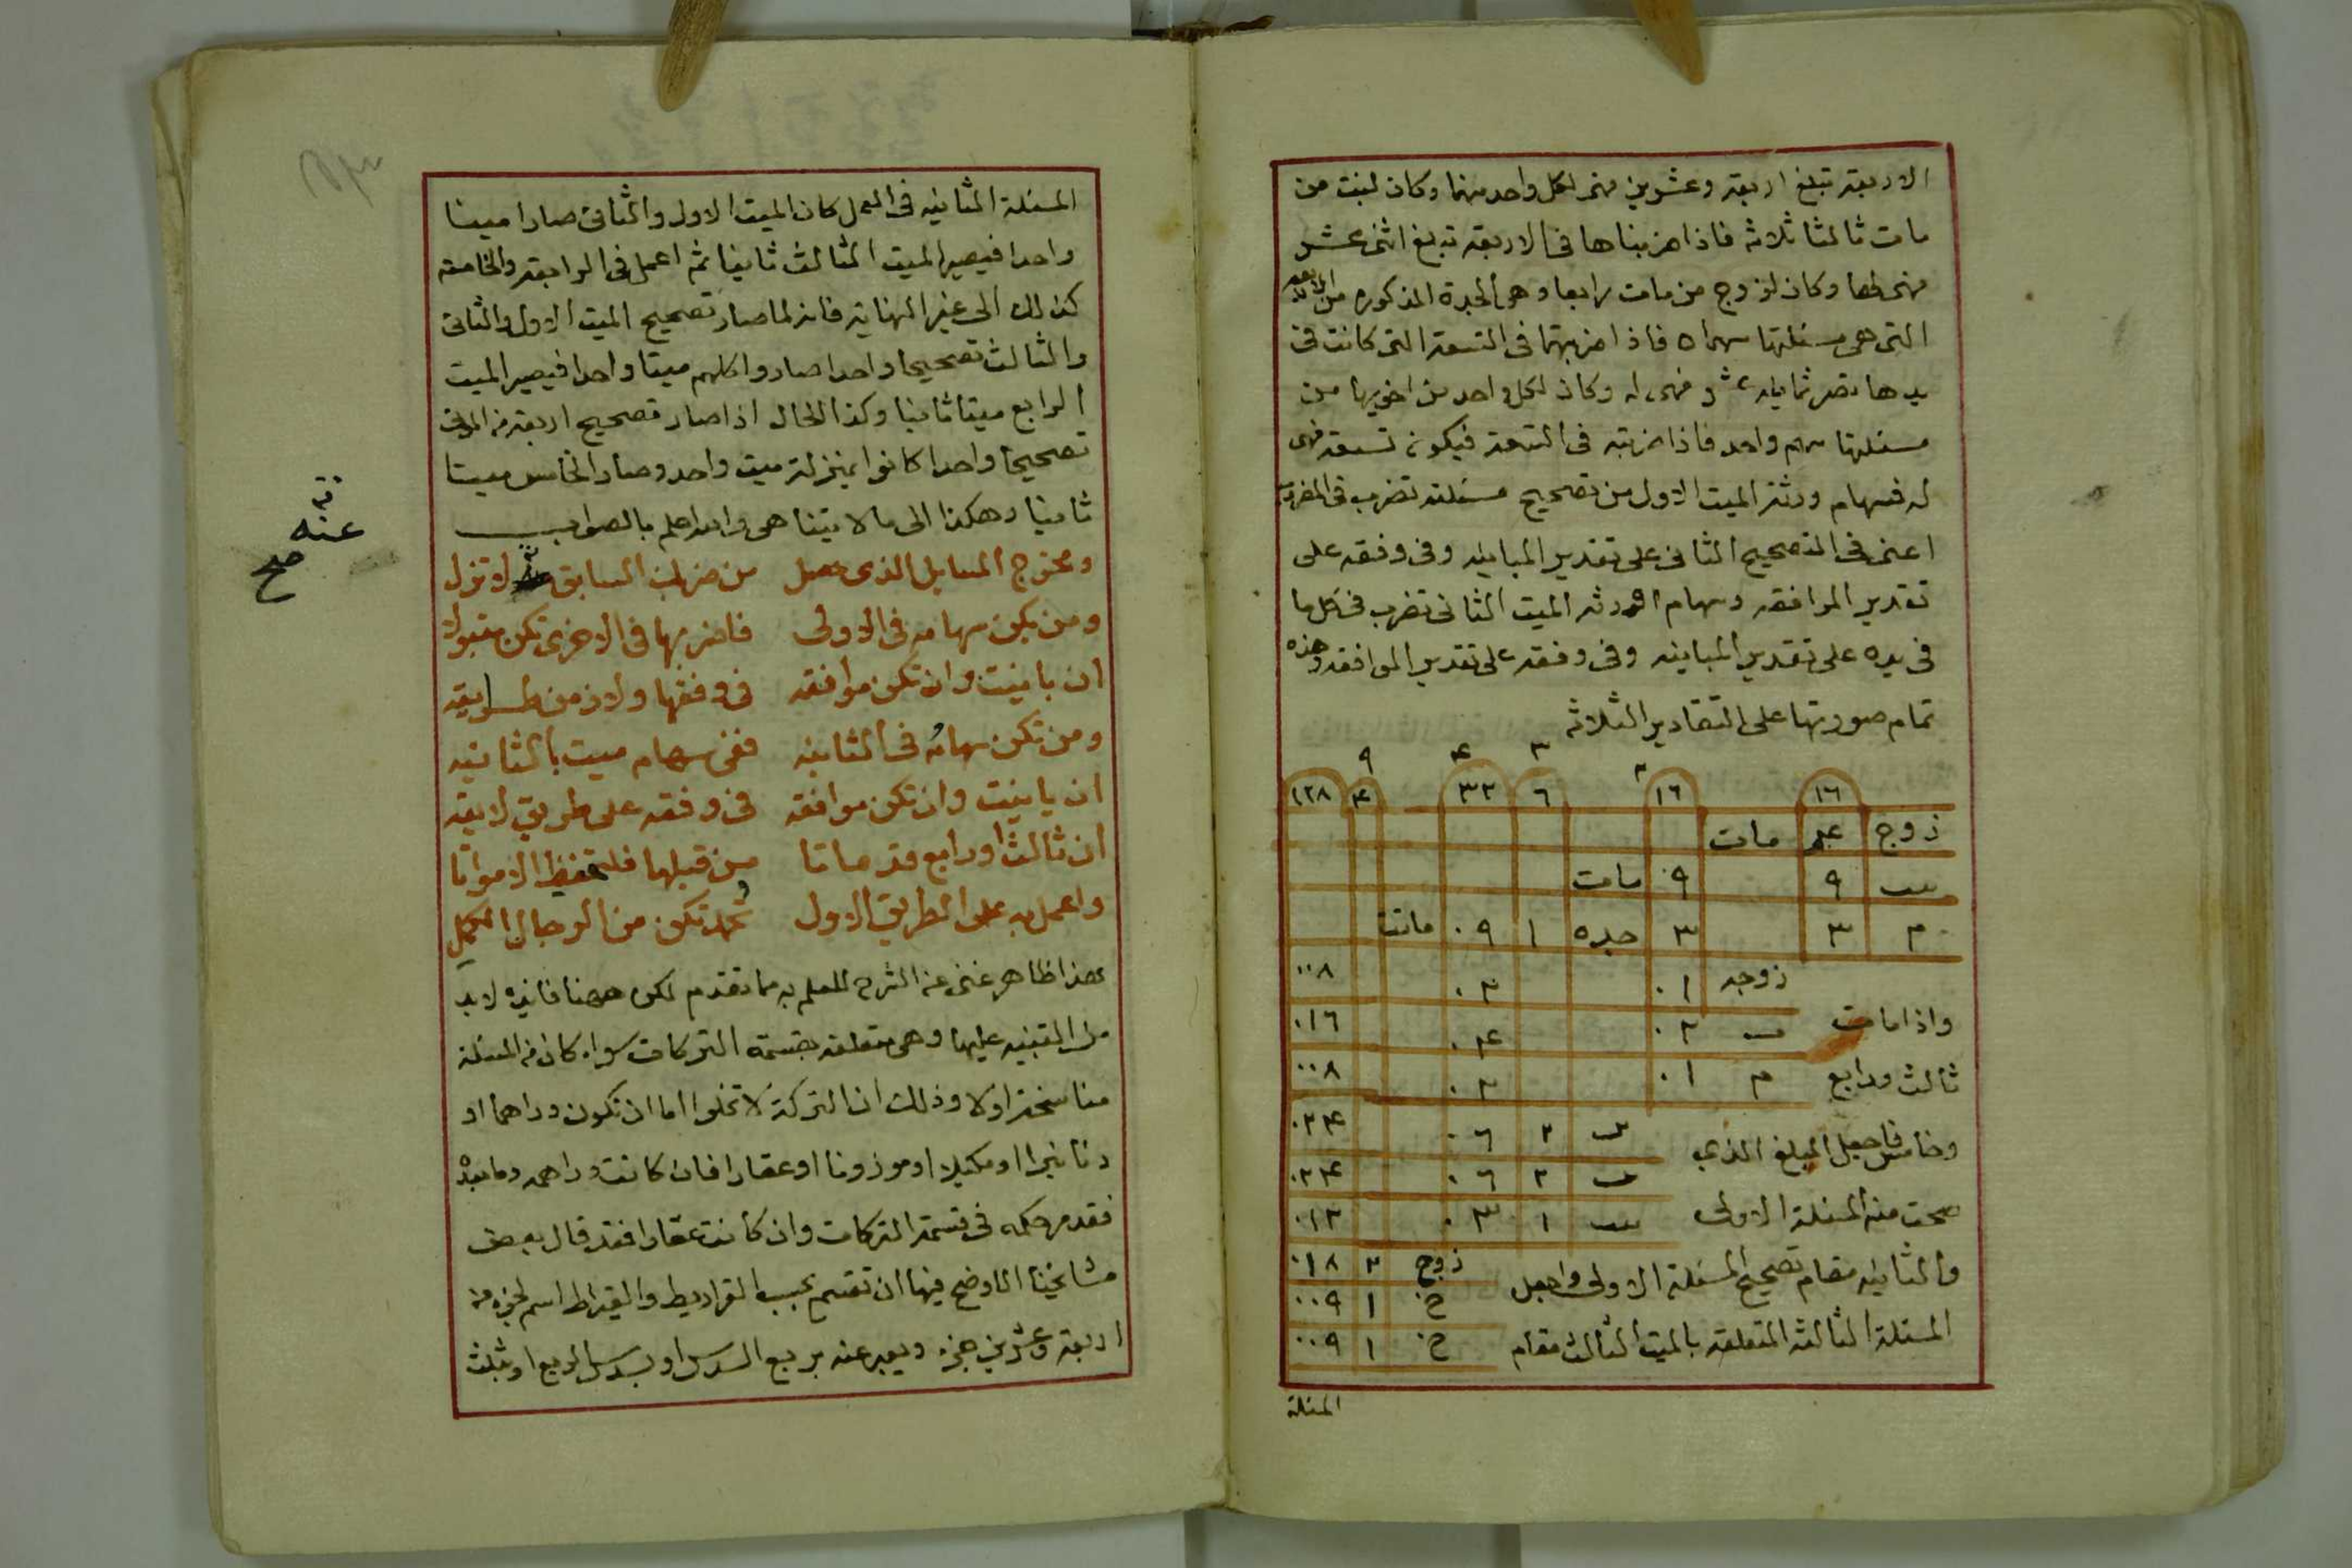 الاربعة تبلغ اربعة وعشرين فهى لكل واحد منهما وكان لبنت من
مات ثالثا ثلاثة فاذا ضربناها فى الاربعة تبلغ اثنى عشر
فهى لها وكان لزوج من مات رابعا وهى الجدة المذكوره من الاربعه
التى هى مسئلتها سهمان فاذا ضربتهما فى التسعة التى كانت فى
يدها تصر ثمانية عشر فهى له وكان لكل واحد من اخويها من
مسئلتها سهم واحد فاذا ضربته فى التسعة فيكون تسعة فهى
له فسهام ورثة الميت الاول من تصحيح مسئلته تضرب فى المضروب
اعنى فى التصحيح الثانى على تقدير المباينه وفى وفقه على
تقدير الموافقه وسهام ورثه الميت الثانى تضرب فى كل ما
فى يده على تقدير المباينه وفى وفقه على تقدير الموافقه وهذه
تمام صورتها على التقادير الثلاثه
٩ ٤ ٣ ٢
١٦ ١٦ ٦ ٣٢ ٤ ١٢٨
زوج ٤ مات
بنت ٩ ٩ مات
م ٣ ٣ جده ١ ٩ ماتت
زوجه ١ ٢ ٨
ب ٢ ٤ ١٦
م ١ ٢ ٨
ب ٢ ٦ ٢٤
ب ٢ ٦ ٢٤
بنت ١ ٣ ١٢
زوج ٢ ١٨
خ ١ ٩
خ ١ ٩
واذا مات
ثالث ورابع
وخامس فاجعل المبلغ الذى
صحت منه المسئلة الاولى
والثانيه مقام تصحيح المسئلة الاولى واجعل
المسئلة الثالثه المتعلقه بالميت الثالث مقام
المسئلة
المسئلة الثانيه فى العمل كان الميت الاول والثانى صارا ميتا
واحدا فيصير الميت الثالث ثانيا ثم اعمل فى الرابعة والخامسة
كذلك الى غير النهاية فانه لما صار تصحيح الميت الاول والثانى
والثالث تصحيحا واحدا صاروا كلهم ميتا واحدا فيصير الميت
الرابع ميتا ثانيا وكذا الحال اذا صار تصحيح اربعة من الموتى
تصحيحا واحدا كانوا بمنزلة ميت واحد وصار الخامس ميتا
ثانيا وهكذا الى ما لا يتناهى والله اعلم بالصواب
ومخرج المسايل الذى حصل من ضرب السابق لا تزل
عنه
صح
ومن يكن سهامه فى الاولى فاضربها فى الاخرى تكن مقبولا
ان باينت وان تكن موافقه فى وفقها ولاذ من طريقه
ومن تكن سهامه فى الثانيه ففى سهام ميت بالثانيه
ان باينت وان تكن موافقه فى وفقه على طريق لايقه
ان ثالث او رابع قد ماتا من قبلها فلتحفظ الامواتا
واعمل به على الطريق الاول تكن من الرجال الكمل
هذا ظاهر غنى عن الشرح للعلم به مما تقدم لكن ههنا فائده لا بد
من التنبيه عليها وهى متعلقه بقسمة التركات سواء كان فى المسئلة
مناسخة او لا وذلك ان التركة لا تخلوا اما ان تكون دراهما او
دنانيرا او مكيلا او موزونا او عقارا فان كانت دراهم وما بعده
فقد مر حكمه فى قسمة التركات وان كانت عقارا فقد قال بعض
مشايخنا الاوضح فيها ان تقسم بحسب القراريط والقيراط اسم لجزء من
اربعة وعشرين جزء ويعبر عنه بربع السدس او بسدس الربع او بثلث